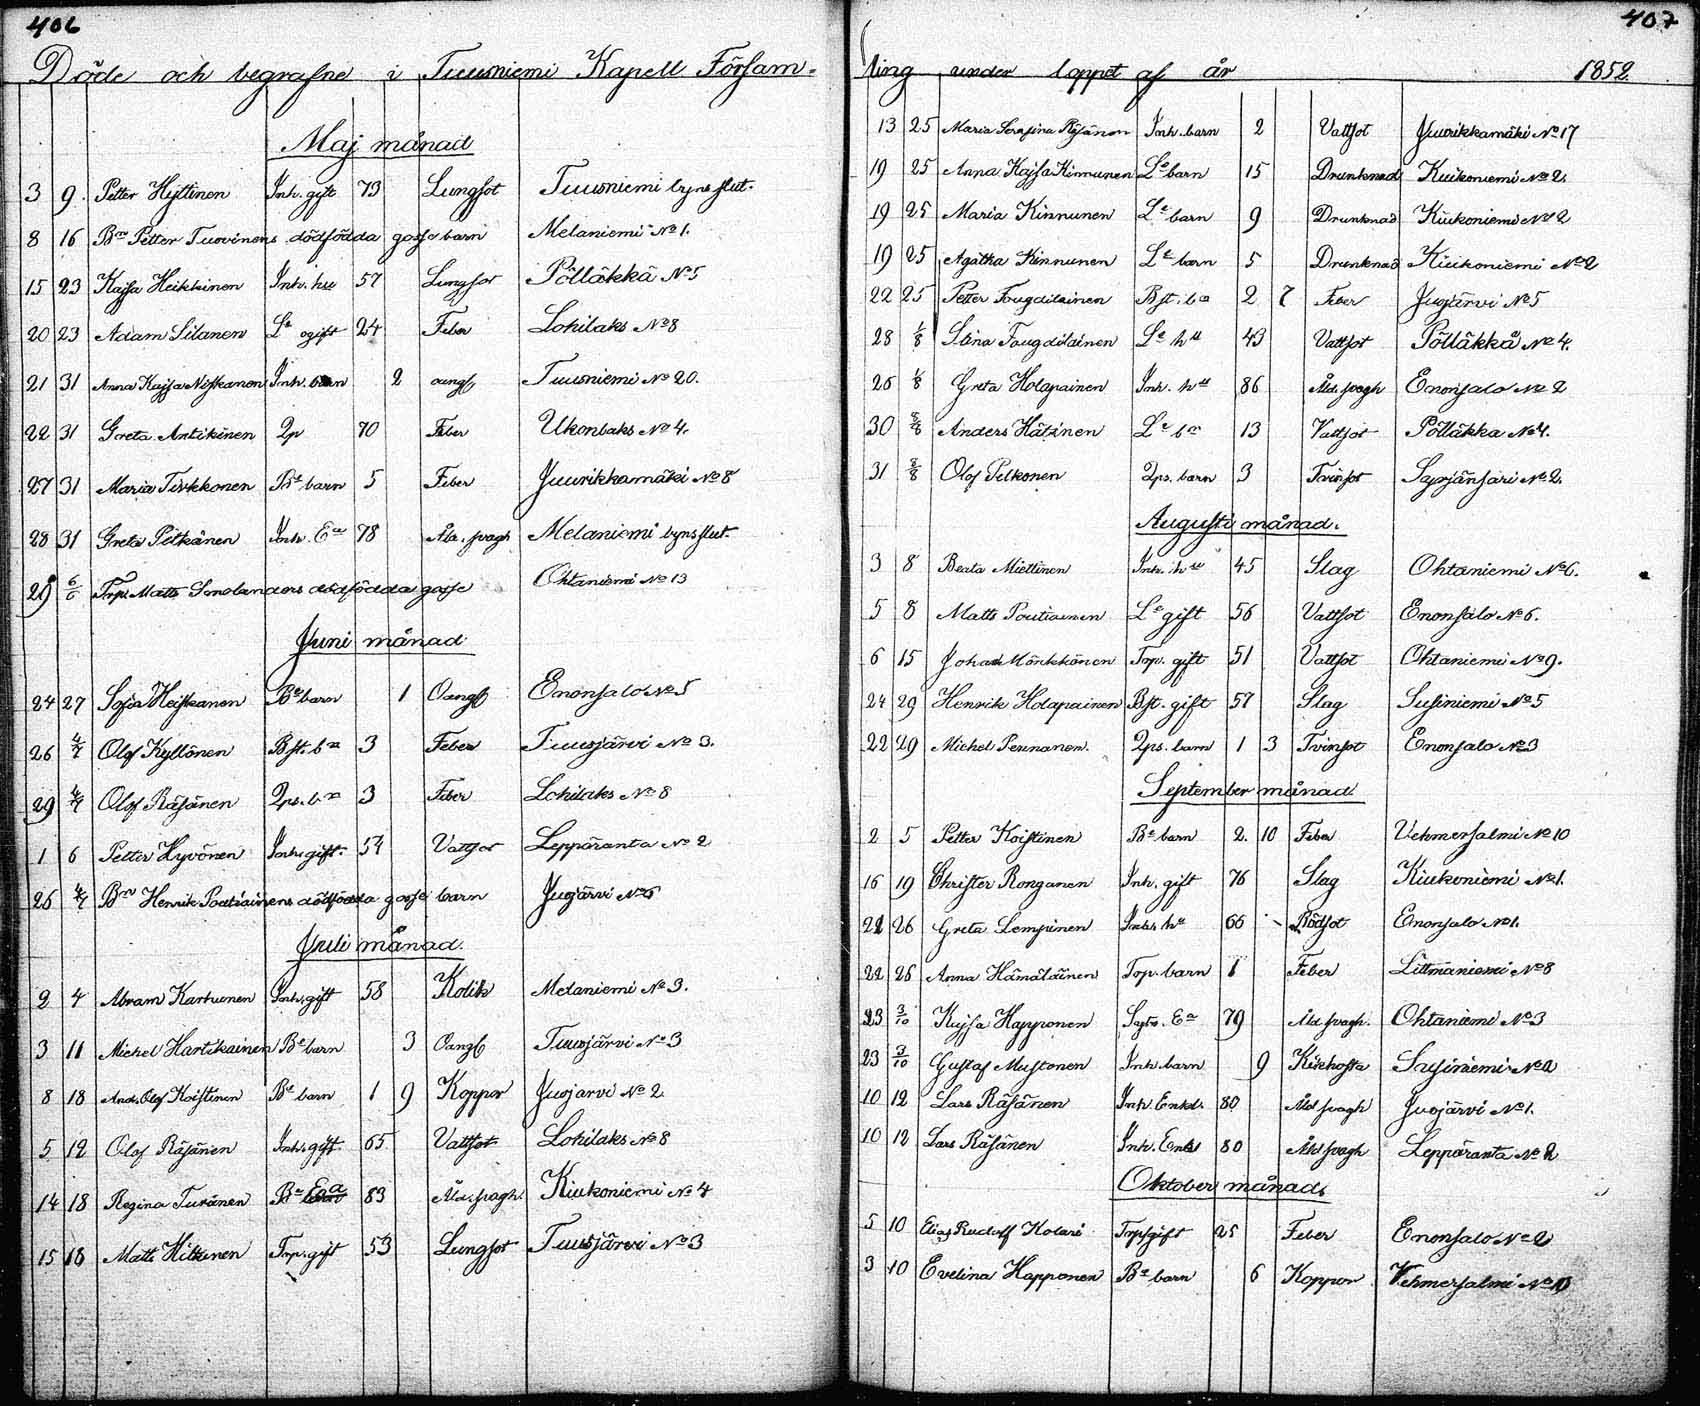 406
Döde och begrafne i Tuusniemi Kapell Försam-
Maj månad
3 9 Petter Hyttinen Inh. gift 73 Lungsot Tuusniemi byns slut.
8 16 Bn Petter Tuovinens dödfödda gosse barn Melaniemi No 1.
15 23 Kajsa Heikkinen Inh. hu 57 Lungsot Pölläkkä No 5
20 23 Adam Silanen Ln ogift 24 Feber Lohilaks No 8
21 31 Anna Kajsa Niskanen Inh. barn 2 oangf Tuusniemi No 20.
22 31 Greta Antikinen Qp 70 Feber Ukonlaks No 4.
27 31 Maria Tirkkonen Bn barn 5 Feber Juurikkamäki No 8
28 31 Greta Pitkänen Inh. Ea 78 Åld. svagh Melaniemi byns slut.
29 6/6 Trp. Matts Smolanders dödfödda gosse Ohtaniemi No 13
Juni månad
24 27 Sofia Heiskanen Bn barn 1 Oangf Enonsalo No 5
26 4/7 Olof Kyllönen Bst. bn 3 Feber Tuusjärvi No 3.
29 4/7 Olof Räsänen Qps. bn 3 Feber Lohilaks No 8
1 6 Petter Hyvönen Inh. gift. 54 Vattsot Lepparanta No 2
26 4/7 Bn Henrik Poutiainens dödfödda gosse barn Juojärvi No 6
Juli månad.
2 4 Abram Karhunen Inh. gift 58 Kolik Melaniemi No 3.
3 11 Michel Hartikainen Bn barn 3 Oangf Tuusjärvi No 3
8 18 And. Olof Koistinen Bn barn 1 9 Koppor Juojarvi No 2
5 12 Olof Räsänen Inh. gift 65 Vattsot Lohilaks No 8
14 18 Regina Turänen Bn Ea 83 Åld. svagh. Kiukoniemi No 4
15 18 Matts Hiltunen Trp. gift 53 Lungsot Tuusjärvi No 3
407
ling under loppet af år 1852.
13 25 Maria Serafina Räsänen Inh. barn 2 Vattsot Juurikkamäki No 17
19 25 Anna Kajsa Kinnunen Ln barn 15 Drunknad Kiukoniemi No 2.
19 25 Maria Kinnunen Ln barn 9 Drunknad Kiukoniemi No 2
19 25 Agatha Kinnunen Ln barn 5 Drunknad Kiukoniemi No 2
22 25 Petter Tougdilainen Bst. bn 2 7 Feber Juojärvi No 5
28 1/8 Stina Tougdilainen Ln hu 43 Vattsot Pölläkkä No 4.
26 1/8 Greta Holapainen Inh. hu 86 Åld. svagh Enonsalo No 2
30 8/8 Anders Hätinen Ln bn 13 Vattsot Pölläkka No 4.
31 8/8 Olof Pelkonen Qps. barn 3 Tvinsot Syrjänsari No 2.
Augusti månad.
3 8 Beata Miettinen Inh. hu 45 Slag Ohtaniemi No 6.
5 8 Matts Poutiainen Ln gift 56 Vattsot Enonsalo No 6.
6 15 Johan Mönkkönen Trp. gift 51 Vattsot Ohtaniemi No 9.
24 29 Henrik Holapainen Bst. gift 57 Slag Susiniemi No 5
22 29 Michel Pennanen. Qps. barn 1 3 Tvinsot Enonsalo No 3
September månad
2 5 Petter Koistinen Bn barn 2. 10 Feber Vehmersalmi No 10
16 19 Christer Ronganen Inh. gift 76 Slag Kiukoniemi No 1.
22 26 Greta Lempinen Inh. hu 66 Rödsot Enonsalo No 1.
22 26 Anna Hämäläinen Torp. barn 1 Feber Littmaniemi No 8
23 3/10 Kajsa Happonen Ea 79 Åld svagh. Ohtaniemi No 3
23 3/10 Gustaf Mustonen Inh. barn 9 Kikhosta Susiniemi No 2
10 12 Lars Räsänen Inh Enkl. 80 Åld svagh Juojärvi No 1.
10 12 Lars Räsänen Inh. Enkl 80 Åld svagh Lepparanta No 2
Oktober månad.
5 10 Elias Rudolf Kolari Trp gift 25 Feber Enonsalo No 2
3 10 Evelina Happonen Bn barn 6 Koppor Vehmersalmi No 10